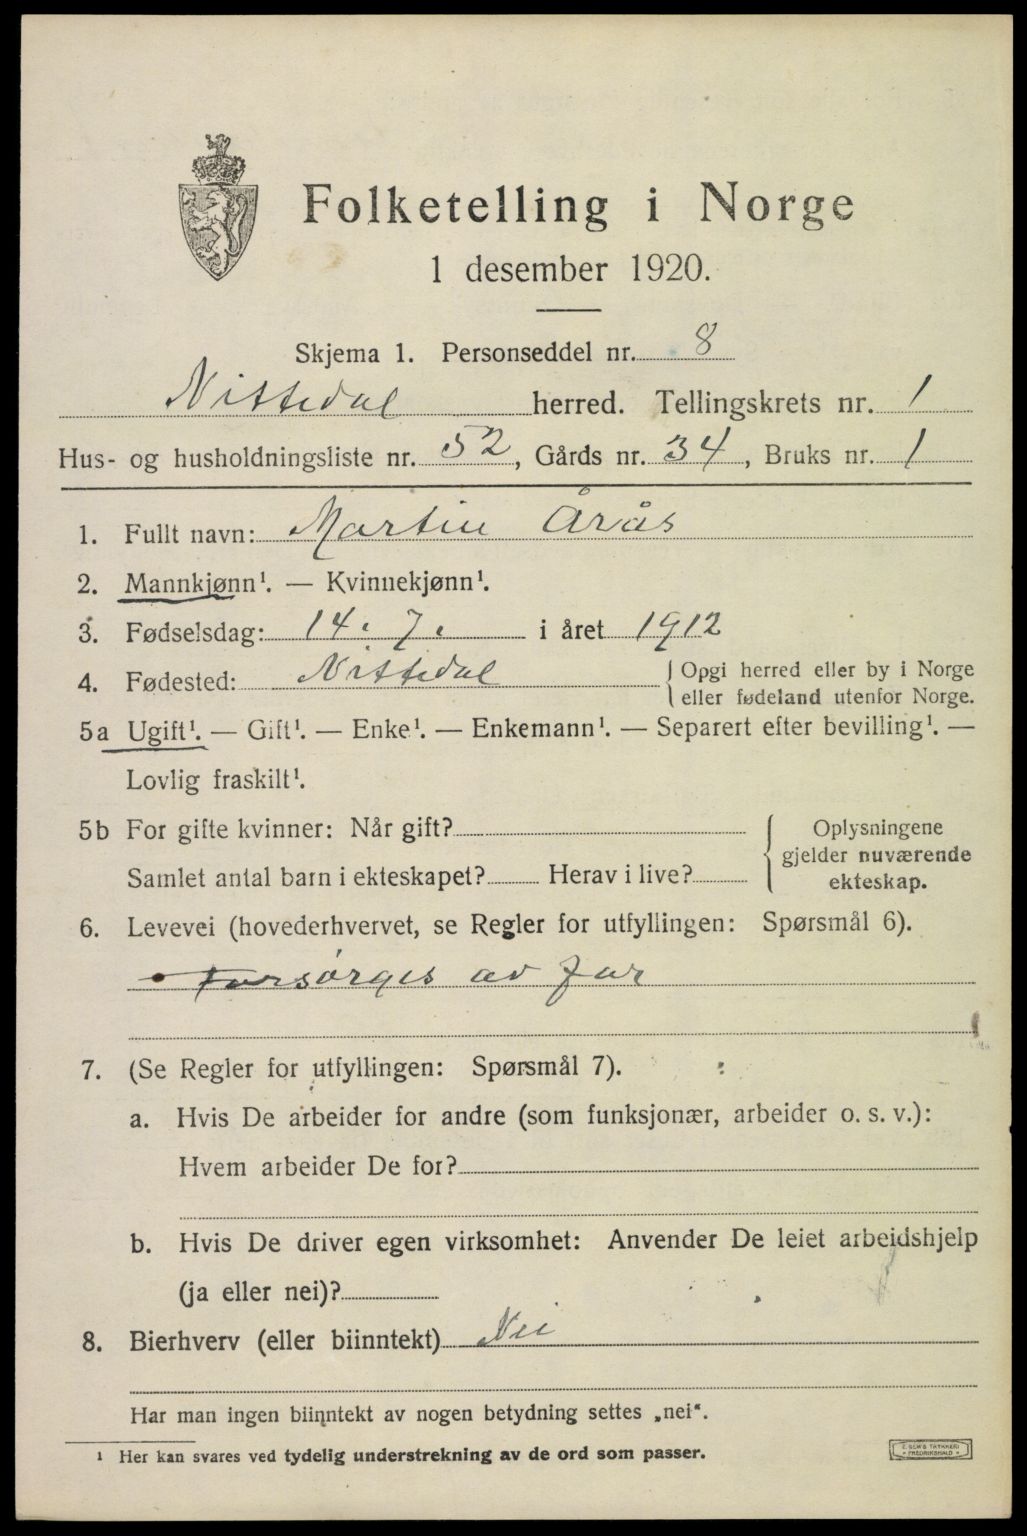 Folketelling i Norge
1 desember 1920.
Skjema 1. Personseddel nr. 8
Nittedal herred. Tellingskrets nr. 1
Hus- og husholdningsliste nr. 52, Gårds nr. 34, Bruks nr. 1
1. Fullt navn: Martin Årås
2. Mannkjønn¹. — Kvinnekjønn¹.
3. Fødselsdag: 14. 7. i året 1912
4. Fødested: Nittedal { Opgi herred eller by i Norge
eller fødeland utenfor Norge.
5a Ugift¹. — Gift¹. — Enke¹. — Enkemann¹. — Separert efter bevilling¹. —
Lovlig fraskilt¹.
5b For gifte kvinner: Når gift? { Oplysningene
gjelder nuværende
Samlet antal barn i ekteskapet? Herav i live? ekteskap.
6. Levevei (hovederhvervet, se Regler for utfyllingen: Spørsmål 6).
Forsørges av far
7. (Se Regler for utfyllingen: Spørsmål 7).
a. Hvis De arbeider for andre (som funksjonær, arbeider o. s. v.):
Hvem arbeider De for?
b. Hvis De driver egen virksomhet: Anvender De leiet arbeidshjelp
(ja eller nei)?
8. Bierhverv (eller biinntekt) Nei
Har man ingen biinntekt av nogen betydning settes „nei“.
¹ Her kan svares ved tydelig understrekning av de ord som passer.
E. SEM'S TRYKKERI
FREDRIKSHALD